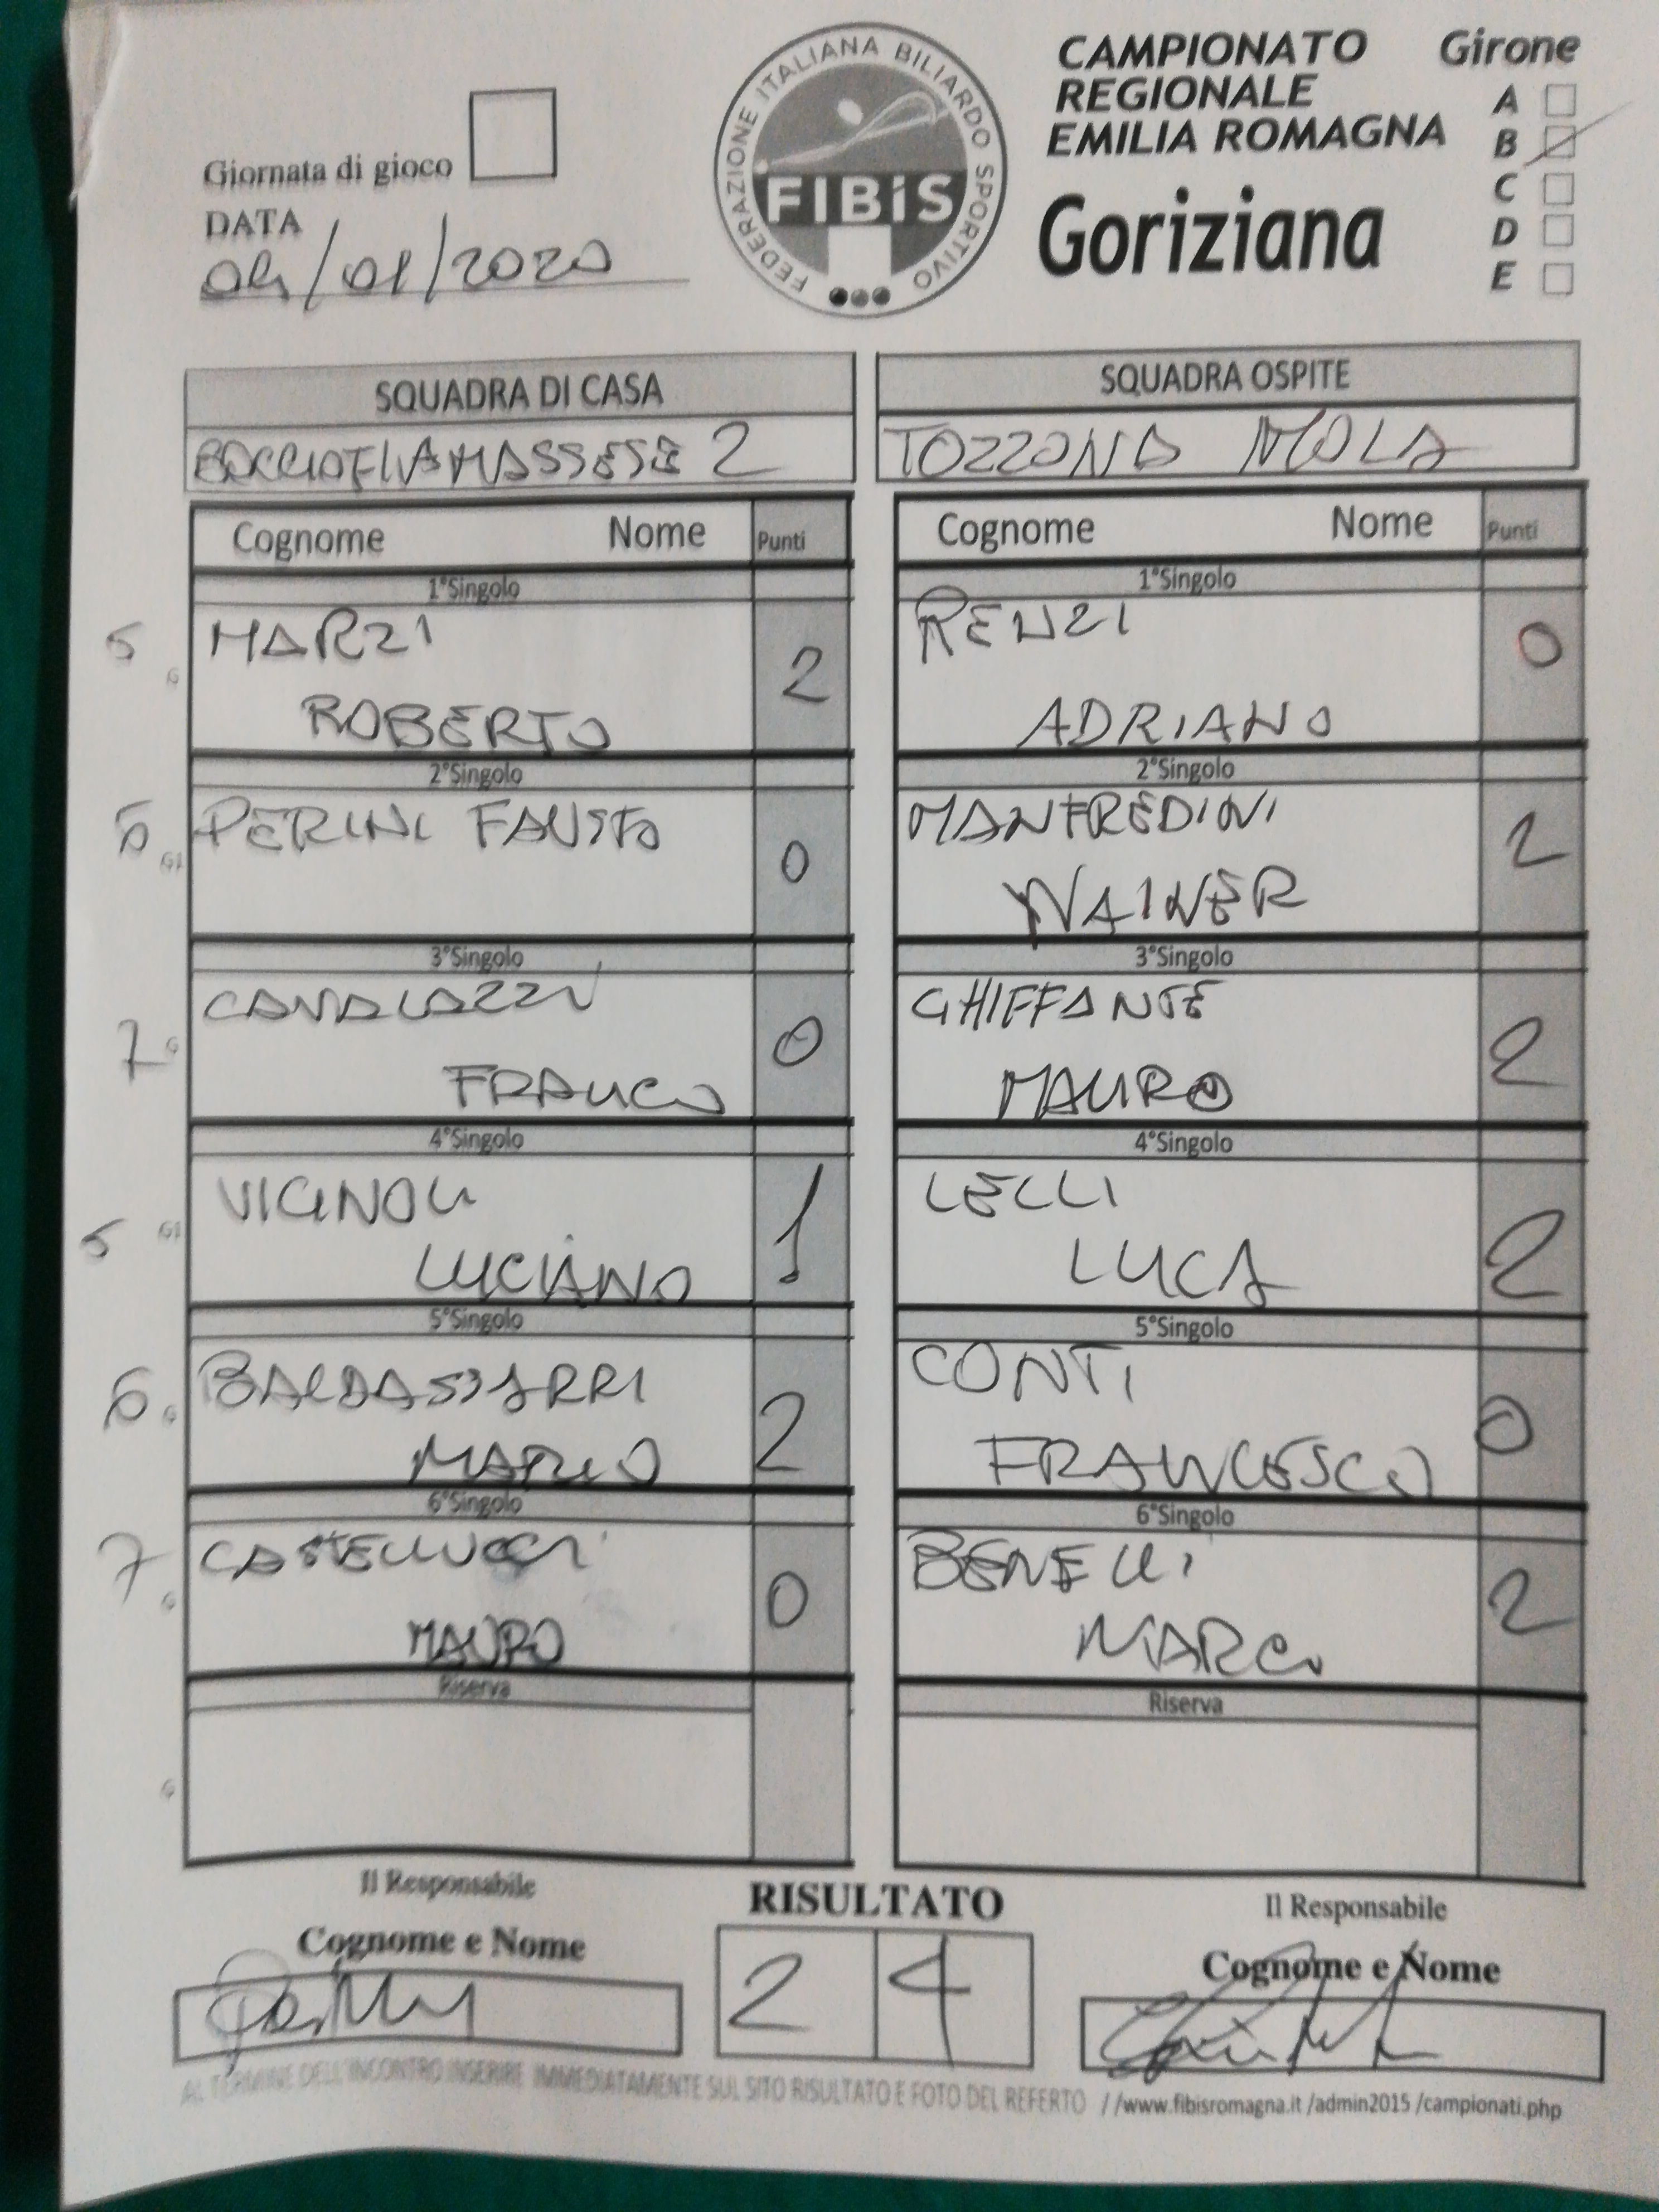 CAMPIONATO
REGIONALE
EMILIA ROMAGNA
Goriziana
Girone
A
B
C
D
E
FEDERAZIONE ITALIANA BILIARDO SPORTIVO
FIBiS
Giornata di gioco
DATA
04/01/2020
SQUADRA DI CASA
BOCCIOFILA MASSESE 2
SQUADRA OSPITE
TOZZONA MOLA
Cognome Nome Punti
Cognome Nome Punti
1°Singolo
1°Singolo
5 MARZI
ROBERTO 2
RENZI
ADRIANO 0
2°Singolo
2°Singolo
6 PERINI FAUSTO 0
MANFREDINI
WAINER 2
3°Singolo
3°Singolo
7 CAVALAZZI
FRANCO 0
GHIFFANTE
MAURO 2
4°Singolo
4°Singolo
5 VIGNOLI
LUCIANO 1
LELLI
LUCA 2
5°Singolo
5°Singolo
6 BALDASSARRI
MARIO 2
CONTI
FRANCESCO 0
6°Singolo
6°Singolo
7 CASTELLUCCI
MAURO 0
BENELLI
MARCO 2
Riserva
Riserva
Il Responsabile
Cognome e Nome
RISULTATO
2 4
Il Responsabile
Cognome e Nome
AL TERMINE DELL'INCONTRO INSERIRE IMMEDIATAMENTE SUL SITO RISULTATO E FOTO DEL REFERTO //www.fibisromagna.it /admin2015 /campionati.php